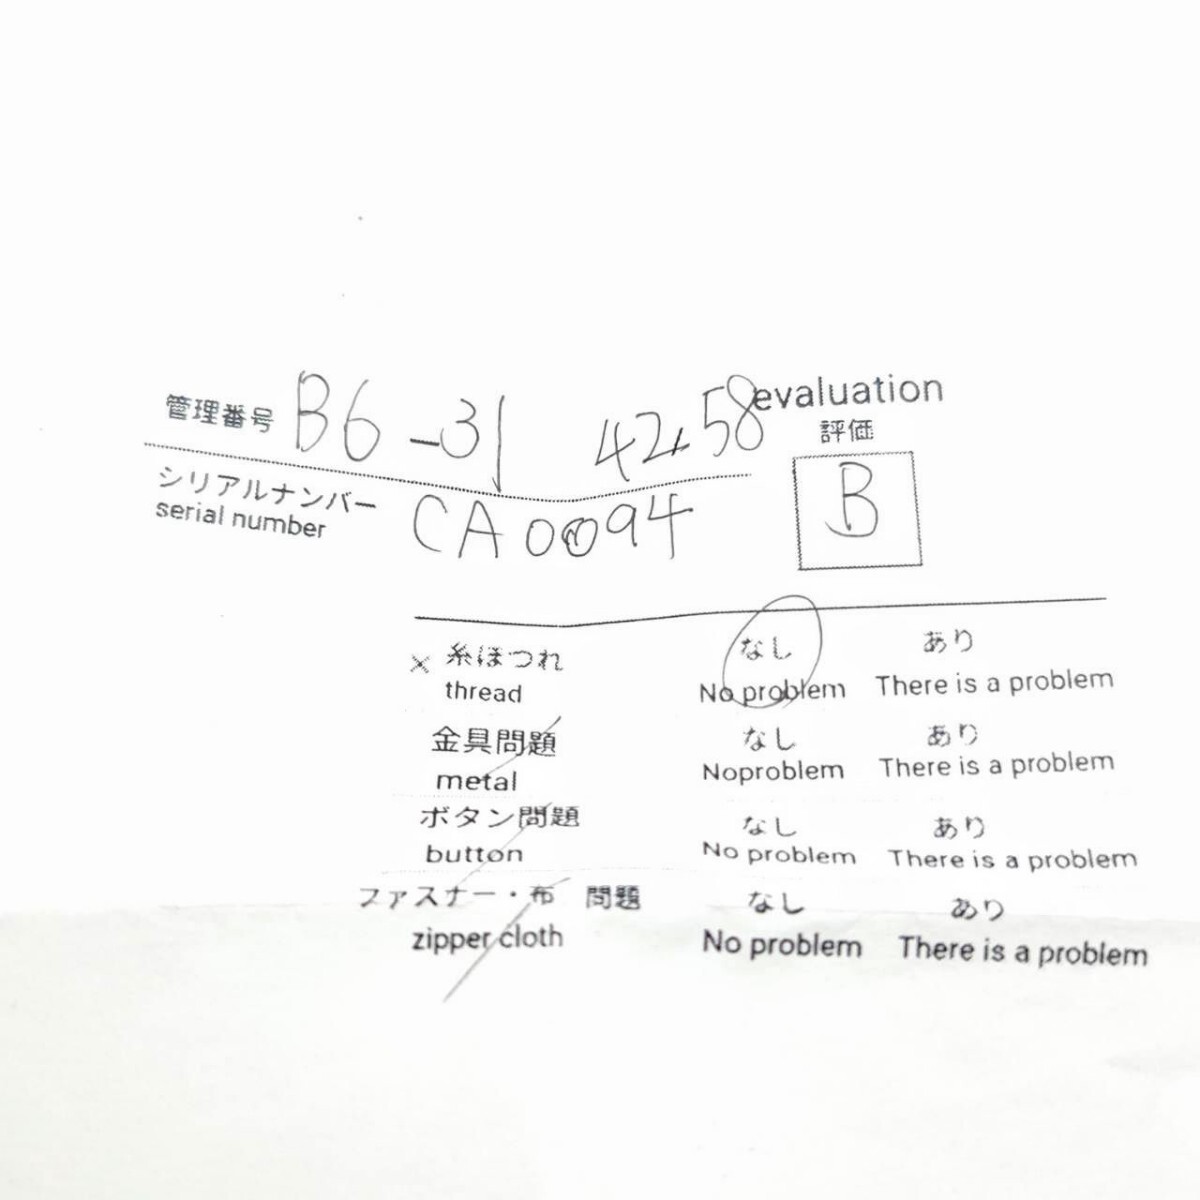 管理番号 B6-31 4258
evaluation
評価
B
シリアルナンバー
serial number
CA0094
× 糸ほつれ なし あり
thread No problem There is a problem
金具問題 なし あり
metal Noproblem There is a problem
ボタン問題 なし あり
button No problem There is a problem
ファスナー・布 問題 なし あり
zipper cloth No problem There is a problem